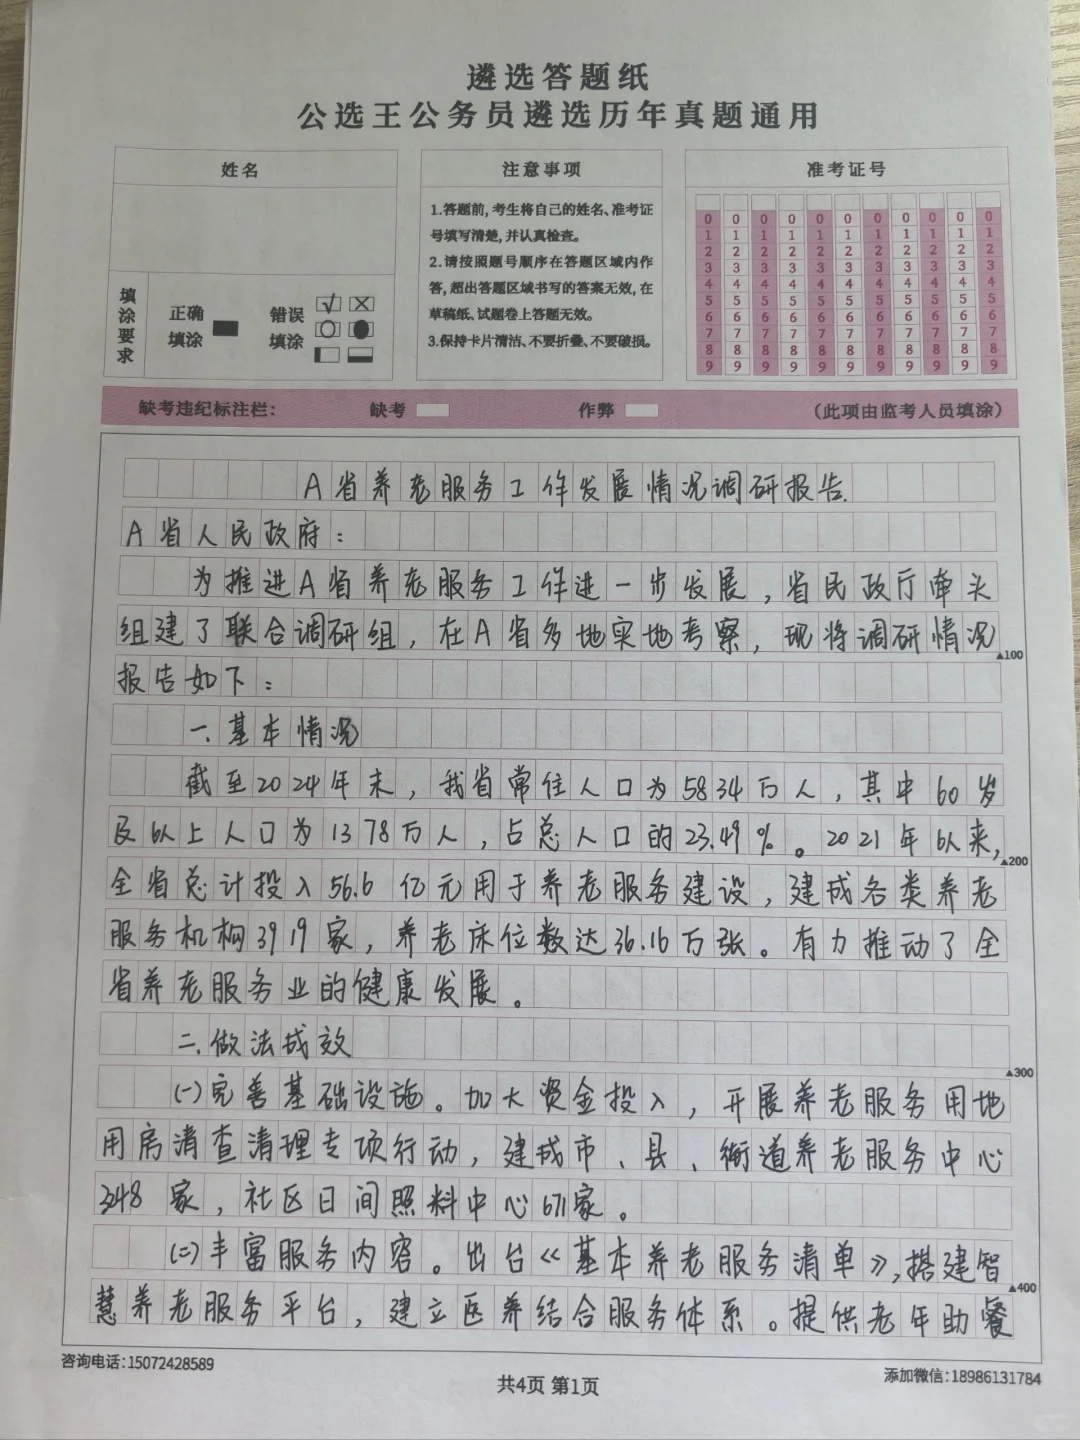 遴选答题纸
公选王公务员遴选历年真题通用
姓名
填涂要求
正确填涂
错误填涂
注意事项
1.答题前,考生将自己的姓名、准考证
号填写清楚,并认真检查。
2.请按照题号顺序在答题区域内作
答,超出答题区域书写的答案无效,在
草稿纸、试题卷上答题无效。
3.保持卡片清洁、不要折叠、不要破损。
准考证号
0 0 0 0 0 0 0 0 0 0 0
1 1 1 1 1 1 1 1 1 1 1
2 2 2 2 2 2 2 2 2 2 2
3 3 3 3 3 3 3 3 3 3 3
4 4 4 4 4 4 4 4 4 4 4
5 5 5 5 5 5 5 5 5 5 5
6 6 6 6 6 6 6 6 6 6 6
7 7 7 7 7 7 7 7 7 7 7
8 8 8 8 8 8 8 8 8 8 8
9 9 9 9 9 9 9 9 9 9 9
缺考违纪标注栏: 缺考 作弊 (此项由监考人员填涂)
A省养老服务工作发展情况调研报告.
A省人民政府:
为推进A省养老服务工作进一步发展,省民政厅牵头
组建了联合调研组,在A省多地实地考察,现将调研情况
▲100
报告如下:
一.基本情况
截至2024年末,我省常住人口为5834万人,其中60岁
及以上人口为1378万人,占总人口的23.49%。2021年以来,
▲200
全省总计投入56.6亿元用于养老服务建设,建成各类养老
服务机构3919家,养老床位数达36.16万张。有力推动了全
省养老服务业的健康发展。
二.做法成效
▲300
(一)完善基础设施。加大资金投入,开展养老服务用地
用房清查清理专项行动,建成市、县、街道养老服务中心
348家,社区日间照料中心671家。
(二)丰富服务内容。出台《基本养老服务清单》,搭建智
▲400
慧养老服务平台,建立医养结合服务体系。提供老年助餐
咨询电话:15072428589
共4页 第1页
添加微信:18986131784